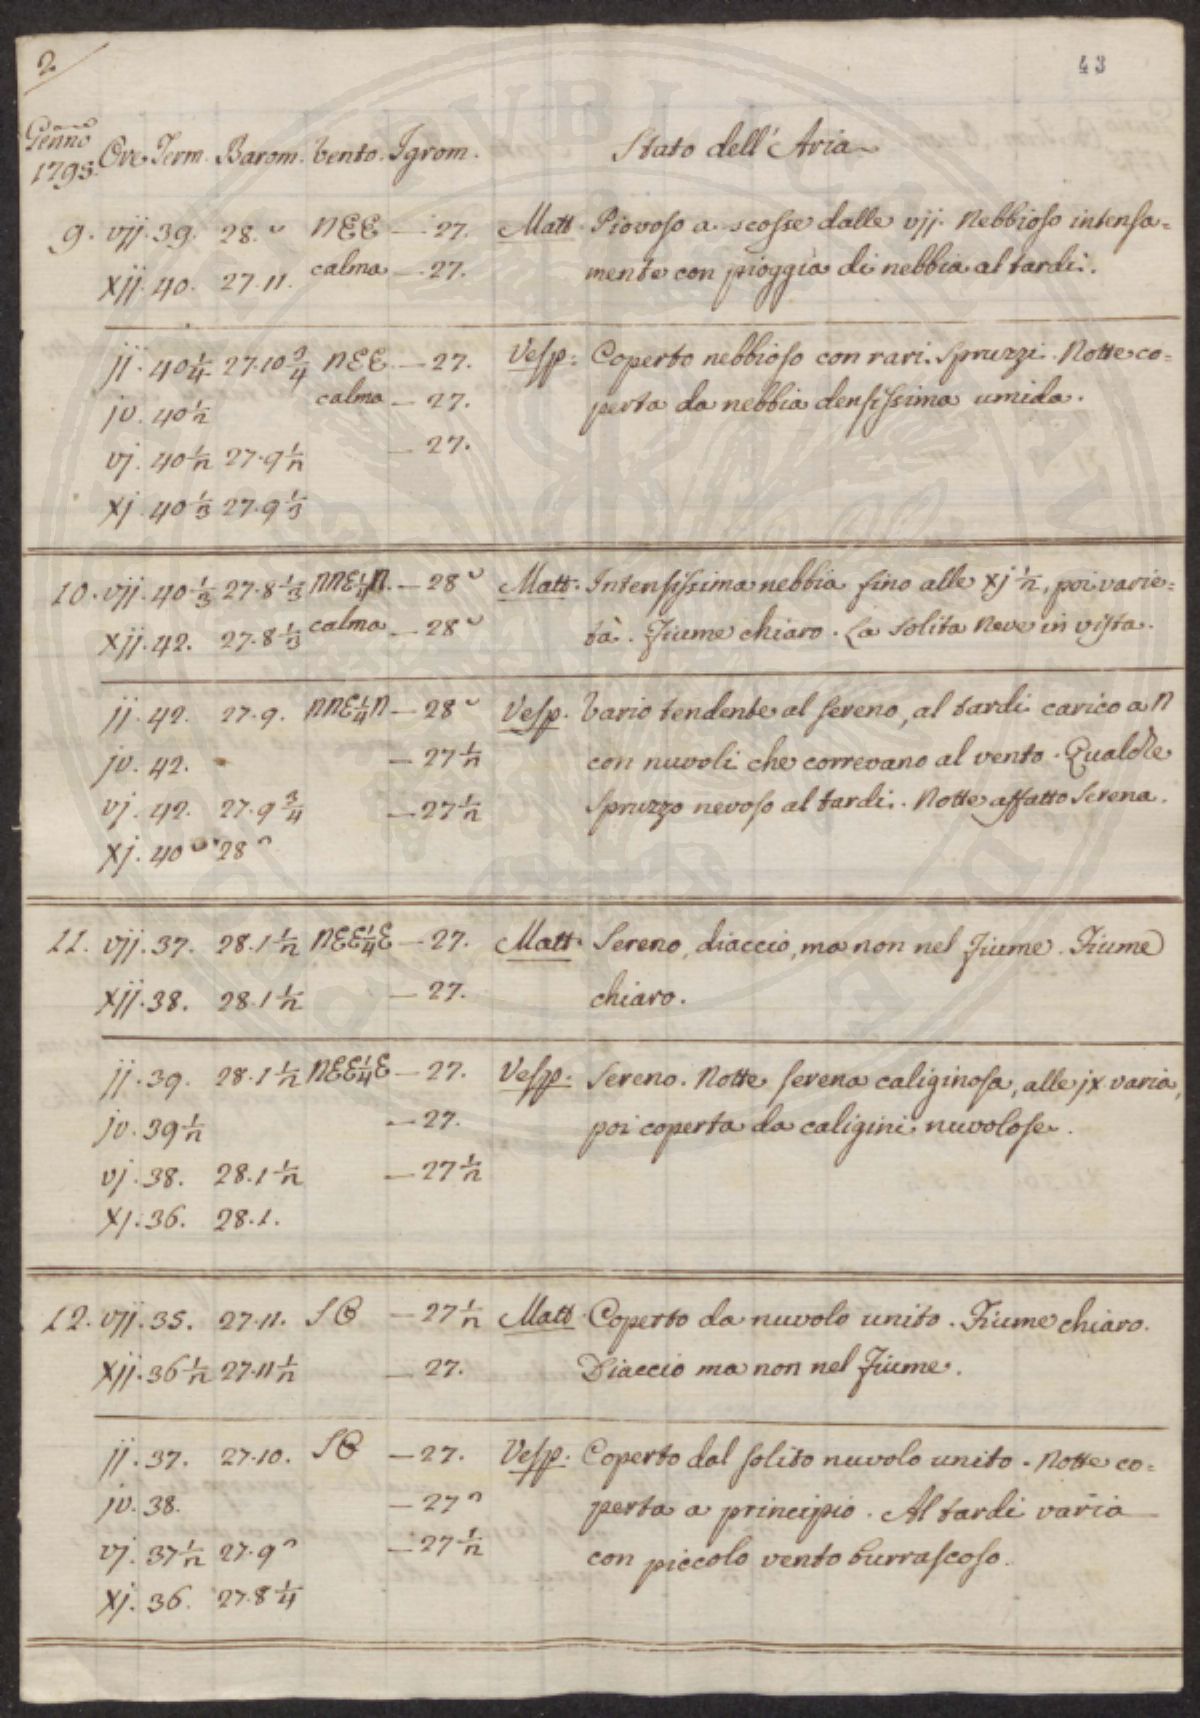 2
43
Genno 1793. Ore Term. Barom. Vento. Igrom. Stato dell'Aria
9. vij. 39. 28. NEE — 27. Matt. Piovoso a scosse dalle vij. Nebbioso intensa=
xij. 40. 27.11. calma — 27. mente con pioggia di nebbia al tardi.
ij. 40 1/4 27.10 3/4 NEE — 27. Vesp. Coperto nebbioso con rari spruzzi. Notte co=
iv. 40 1/2 calma — 27. perta da nebbia densissima umida.
vj. 40 1/2 27.9 1/2 — 27.
xj. 40 1/3 27.9 1/3
10. vij. 40 1/3 27.8 1/3 NNE 1/4 N. — 28 Matt. Intensissima nebbia fino alle xj 1/2, poi varie=
xij. 42. 27.8 1/3 calma — 28 tà. Fiume chiaro. La solita neve in vista.
ij. 42. 27.9. NNE 1/4 N — 28 Vesp. Vario tendente al sereno, al tardi carico a N
iv. 42. — 27 1/2 con nuvoli che correvano al vento. Qualche
vj. 42. 27.9 3/4 — 27 1/2 spruzzo nevoso al tardi. Notte affatto serena.
xj. 40 28
11. vij. 37. 28.1 1/2 NEE 1/4 E — 27. Matt. Sereno, diaccio, ma non nel Fiume. Fiume
xij. 38. 28.1 1/2 — 27. chiaro.
ij. 39. 28.1 1/2 NEE 1/4 E — 27. Vesp. Sereno. Notte serena caliginosa, alle ix varia,
iv. 39 1/2 — 27. poi coperta da caligini nuvolose.
vj. 38. 28.1 1/2 — 27 1/2
xj. 36. 28.1.
12. vij. 35. 27.11. SO — 27 1/2 Matt. Coperto da nuvolo unito. Fiume chiaro.
xij. 36 1/2 27.11 1/2 — 27. Diaccio ma non nel Fiume.
ij. 37. 27.10. SO — 27. Vesp. Coperto dal solito nuvolo unito. Notte co=
iv. 38. — 27 perta a principio. Al tardi varia
vj. 37 1/2 27.9 — 27 1/2 con piccolo vento burrascoso.
xj. 36. 27.8 1/4